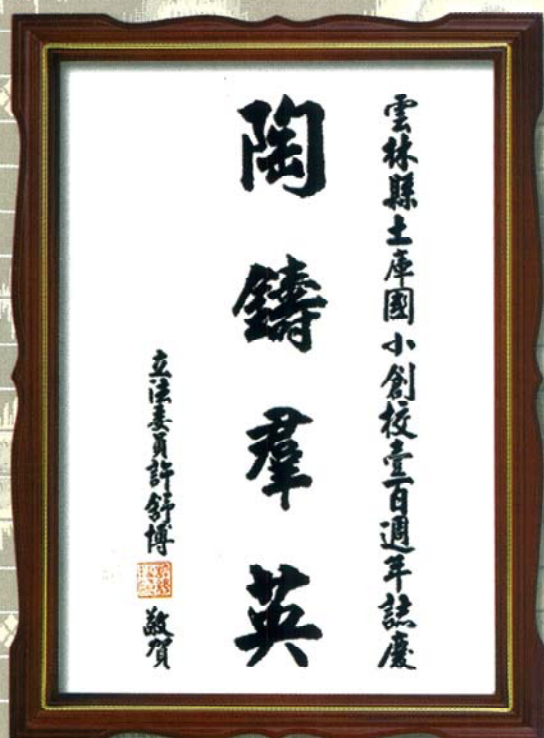 雲林縣土庫國小創校壹百週年誌慶
陶鑄羣英
立法委員許舒博 敬賀